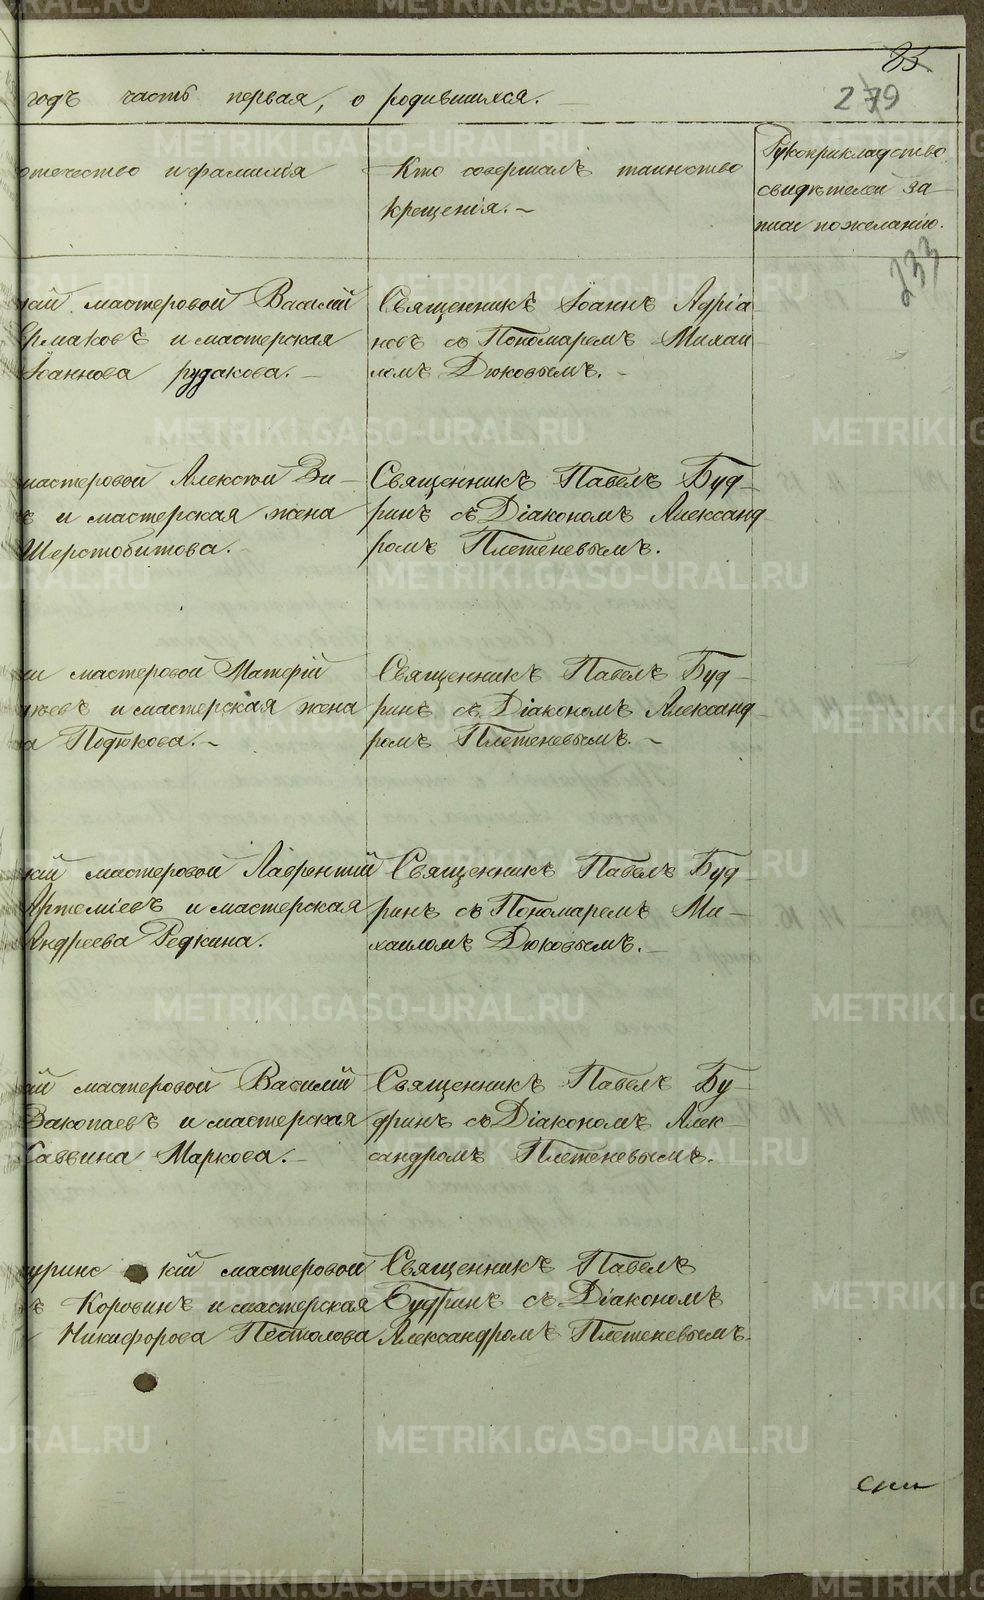 годъ часть первая, о родившихся.
279
233
отечество и фамилія
Кто совершалъ таинство
крещенія.
Рукоприкладство
свидѣтелей за-
писи по желанію.
мастеровой Василій
Ермаковъ и мастерская
Іоаннова Рудакова.
Священникъ Іоаннъ Адріа-
новъ съ Пономаремъ Михаи-
ломъ Дюковымъ.
мастеровой Алексѣй
и мастерская жена
Шерстобитова.
Священникъ Павелъ Буд-
ринъ съ Діакономъ Александ-
ромъ Плетеневымъ.
мастеровой Матфій
и мастерская жена
Подюкова.
Священникъ Павелъ Буд-
ринъ съ Діакономъ Александ-
ромъ Плетеневымъ.
кій мастеровой Лаврентій
Артеміевъ и мастерская
Андреева Редкина.
Священникъ Павелъ Буд
ринъ съ Пономаремъ Ми-
хаиломъ Дюковымъ.
мастеровой Василій
Закопаевъ и мастерская
Саввина Маркова.
Священникъ Павелъ Бу-
дринъ съ Діакономъ Алек-
сандромъ Плетеневымъ.
кій мастеровой
Коровинъ и мастерская
Никифорова
Священникъ Павелъ
Будринъ съ Діакономъ
Александромъ Плетеневымъ.
METRIKI.GASO-URAL.RU